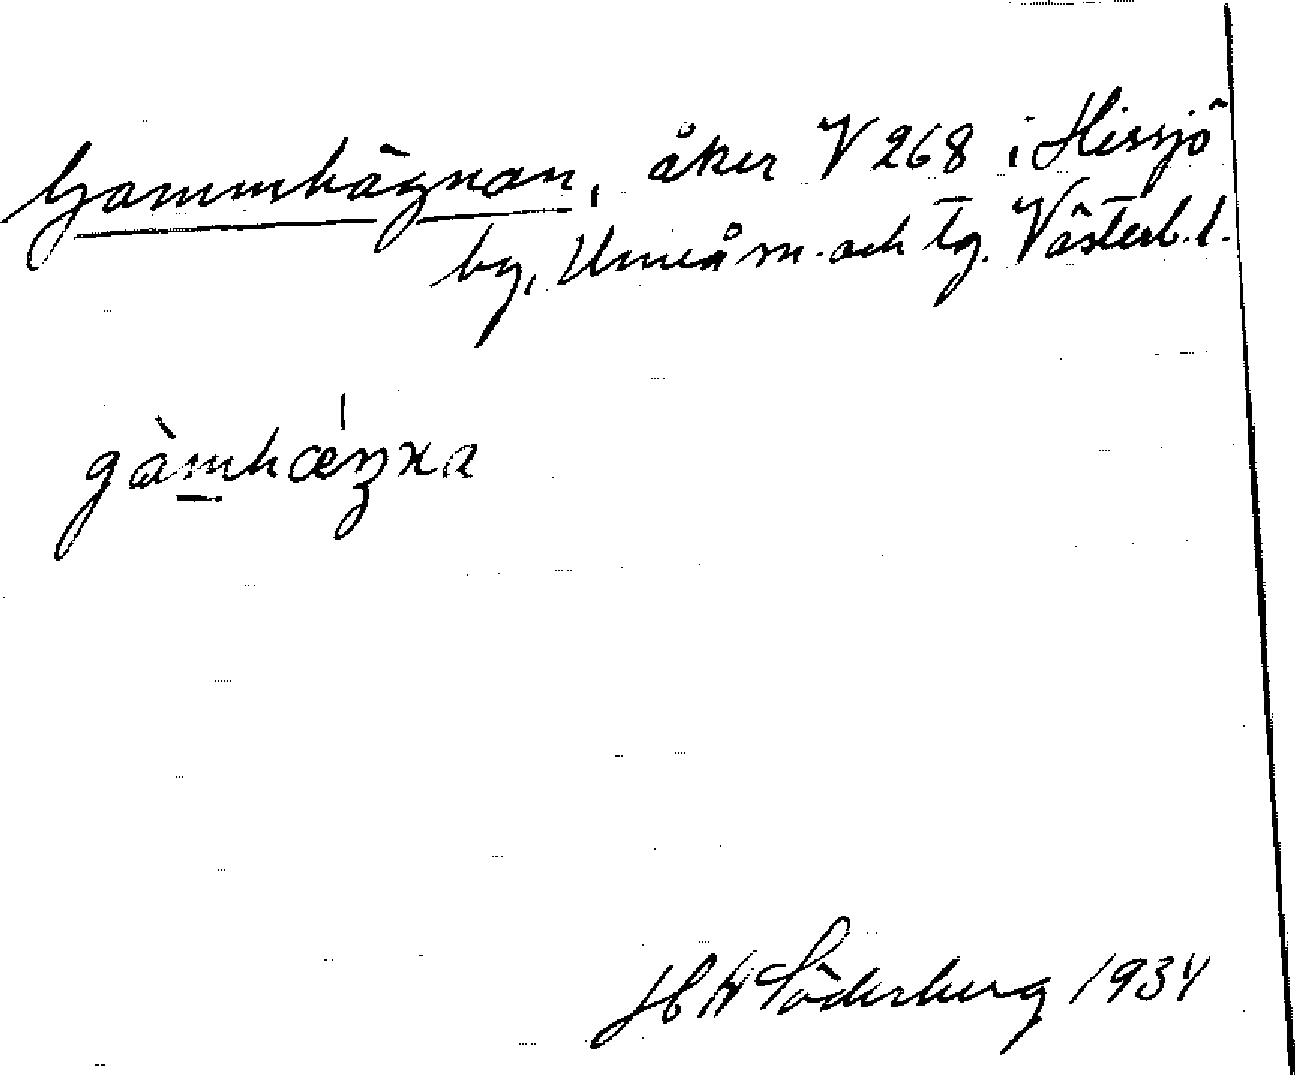 Gammhägnan, åker V 268 i Hissjö
by, Umeå m. och tg. Västerb. l.
gàmhǽŋna
H W Söderberg 1934